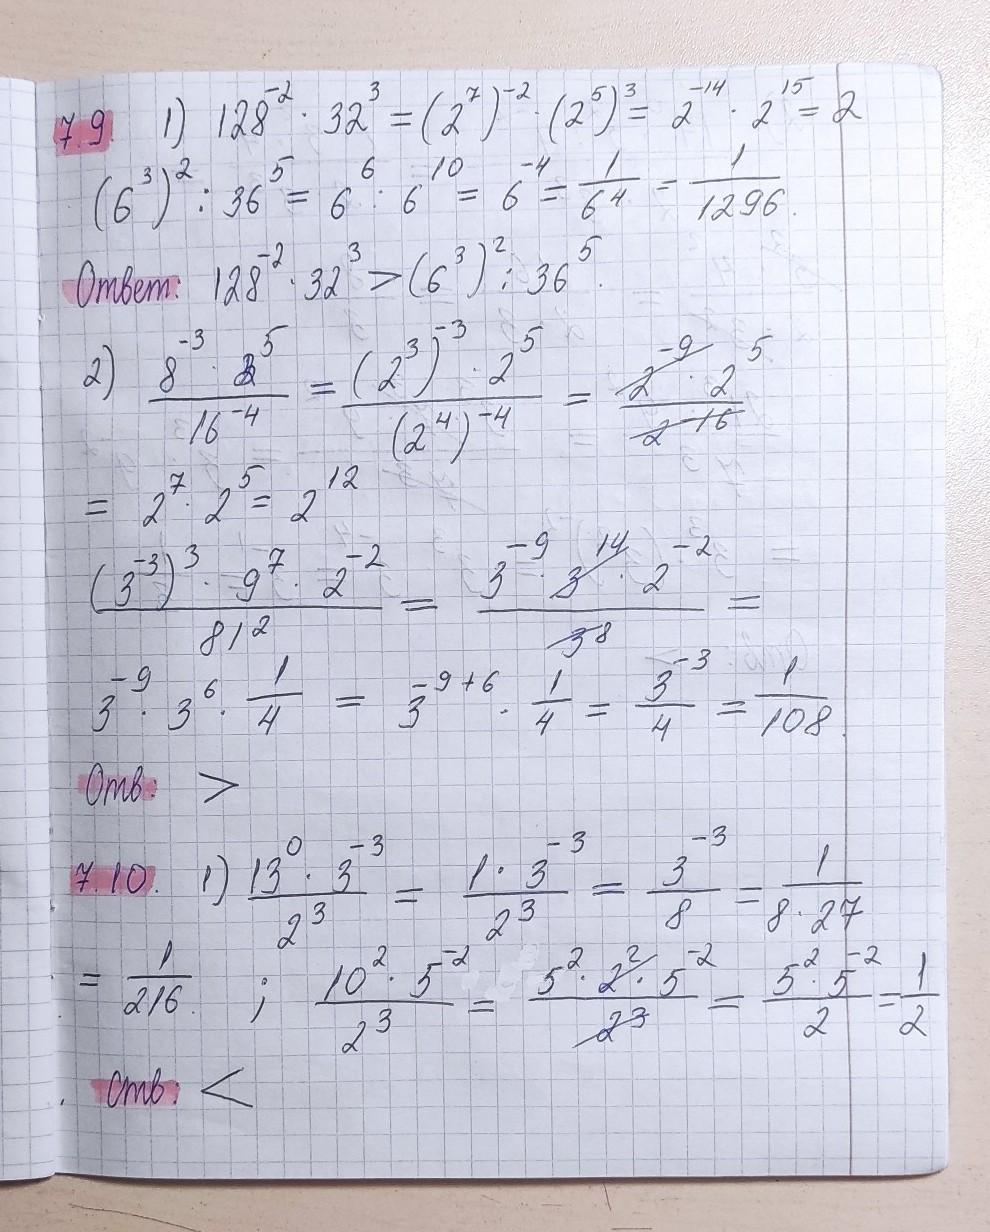 7.9. 1) 128⁻² · 32³ = (2⁷)⁻² · (2⁵)³ = 2⁻¹⁴ · 2¹⁵ = 2
(6³)² : 36⁵ = 6⁶ : 6¹⁰ = 6⁻⁴ = 1/6⁴ = 1/1296.
Ответ: 128⁻² · 32³ > (6³)² : 36⁵.
2) (8⁻³ · 2⁵)/16⁻⁴ = ((2³)⁻³ · 2⁵)/(2⁴)⁻⁴ = (2⁻⁹ · 2⁵)/2⁻¹⁶
= 2⁷ · 2⁵ = 2¹²
((3⁻³)³ · 9⁷ · 2⁻²)/81² = (3⁻⁹ · 3¹⁴ · 2⁻²)/3⁸ =
3⁻⁹ · 3⁶ · 1/4 = 3⁻⁹⁺⁶ · 1/4 = 3⁻³/4 = 1/108.
Отв: >
7.10. 1) (13⁰ · 3⁻³)/2³ = (1 · 3⁻³)/2³ = 3⁻³/8 = 1/(8 · 27)
= 1/216. ; (10² · 5⁻²)/2³ = (5² · 2² · 5⁻²)/2³ = (5² · 5⁻²)/2 = 1/2
Отв: <